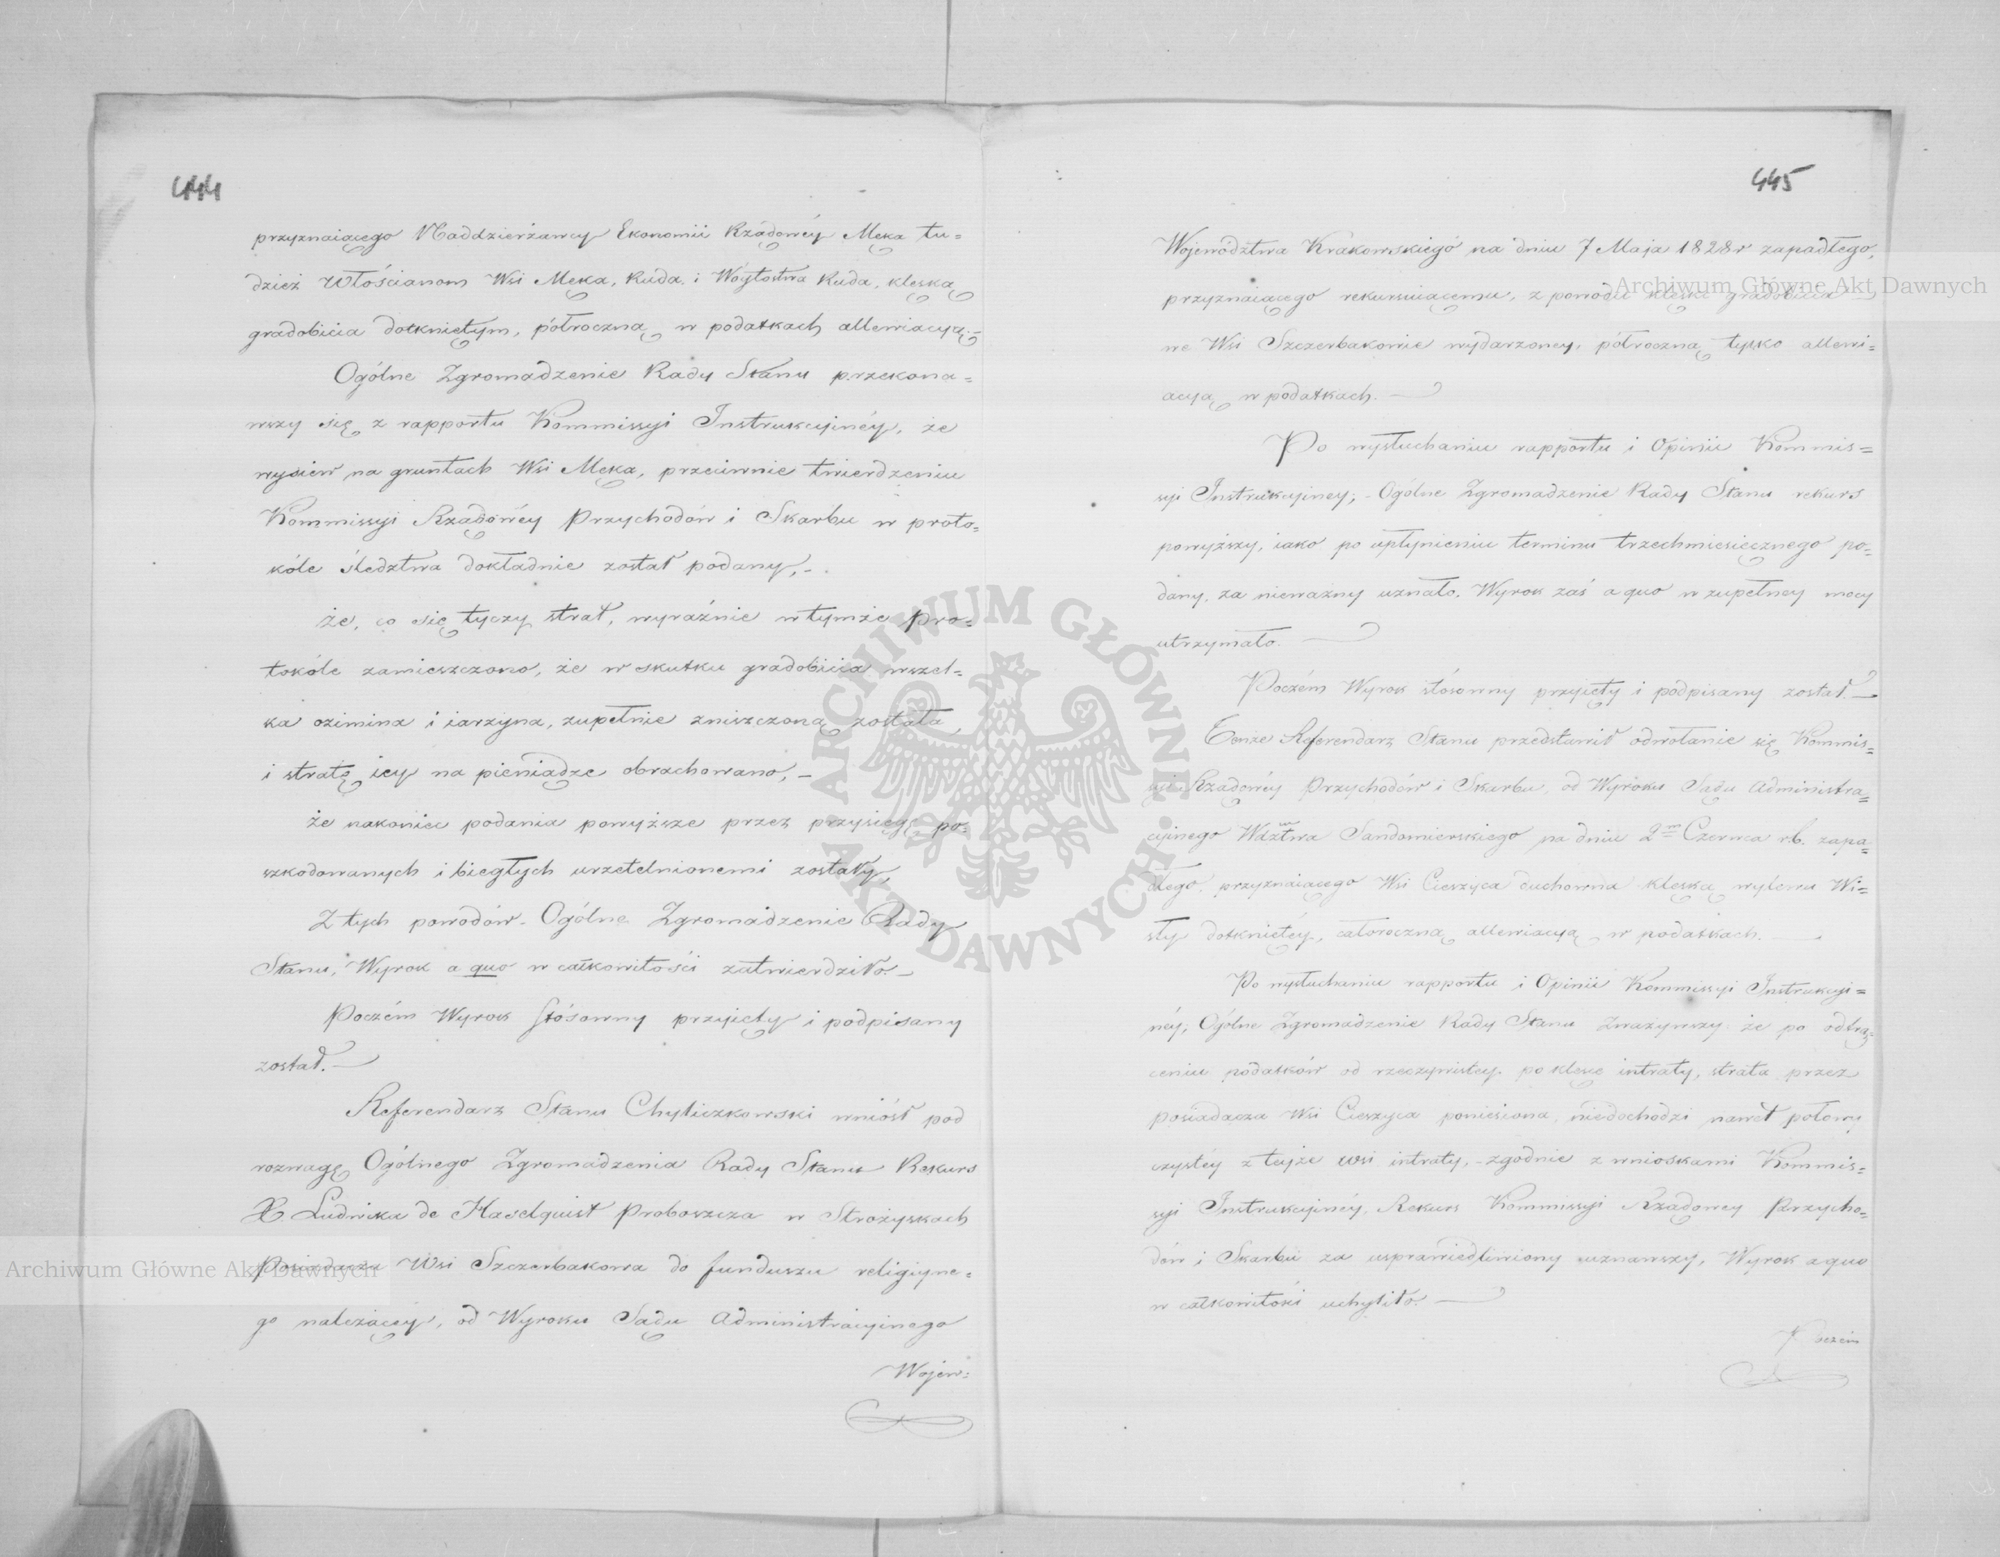 444
przyznaiącego Naddzierżawcy Ekonomii Rządowéy Męka tu=
dzież Włościanom Wsi Męka, Ruda i Wóytostwa Ruda, klęską
gradobicia dotkniętym, półroczną w podatkach allewiacyą.=
Ogólne Zgromadzenie Rady Stanu przekona=
wszy się z rapportu Kommissyi Instrukcyinéy, że
wysiew na gruntach Wsi Męka, przeciwnie twierdzeniu
Kommissyi Rządowéy Przychodów i Skarbu w proto=
kóle śledztwa dokładnie został podany,-
że, co się tyczy strat, wyraźnie w tymże Pro=
tokóle zamieszczono, że w skutku gradobicia wszel=
ka ozimina i iarzyna, zupełnie zniszczoną została
i stratę iey na pieniądze obrachowano,-
że nakoniec podania powyższe przez przysięgę po=
szkodowanych i biegłych urzetelnionemi zostały,
Z tych powodów - Ogólne Zgromadzenie Rady
Stanu, Wyrok a quo w całkowitości zatwierdziło.-
Poczém Wyrok stósowny przyięty i podpisany
został.-
Referendarz Stanu Chyliczkowski wniósł pod
rozwagę Ogólnego Zgromadzenia Rady Stanu Rekurs
X Ludwika de Haselquist Proboszcza w Strożyskach
Posiadacza Wsi Szczerbakowa do funduszu religiyne=
go należącéy, od Wyroku Sądu Administracyinego
Wojew=
445
Województwa Krakowskiego na dniu 7 Maja 1828 r zapadłego,
przyznaiącego rekursuiącemu, z powodu klęski gradobicia
we Wsi Szczerbakowie wydarzoney, półroczną tylko allewi=
acyą w podatkach.-
Po wysłuchaniu rapportu i Opinii Kommis=
syi Instrukcyiney; - Ogólne Zgromadzenie Rady Stanu rekurs
powyższy, iako po upłynieniu terminu trzechmiesięcznego po=
dany, za nieważny uznało. Wyrok zaś a quo w zupełney mocy
utrzymało.-
Poczém Wyrok stósowny przyięty i podpisany został.-
Tenże Referendarz Stanu przedstawił odwołanie się Kommis=
syi Rządowéy Przychodów i Skarbu, od Wyroku Sądu Administra=
cyinego Wdztwa Sandomierskiego na dniu 2m Czerwca r.b. zapa=
dłego, przyznaiącego Wsi Cieszyca duchowna klęską wylewu Wi=
sły dotkniętéy, całoroczną allewiacyą w podatkach.-
Po wysłuchaniu rapportu i Opinii Kommissyi Instrukcyi=
néy; Ogólne Zgromadzenie Rady Stanu Zważywszy że po odtrą=
ceniu podatków od rzeczywistey po klęsce intraty, strata przez
posiadacza Wsi Cieszyca poniesiona, niedochodzi nawet połowy
czystéy z teyże wsi intraty, - zgodnie z wnioskami Kommis=
syi Instrukcyinéy, Rekurs Kommissyi Rządowey Przycho=
dów i Skarbu za usprawiedliwiony uznawszy, Wyrok a quo
w całkowitości uchyliło.-
Poczém
Archiwum Główne Akt Dawnych
Archiwum Główne Akt Dawnych
ARCHIWUM GŁÓWNE AKT DAWNYCH